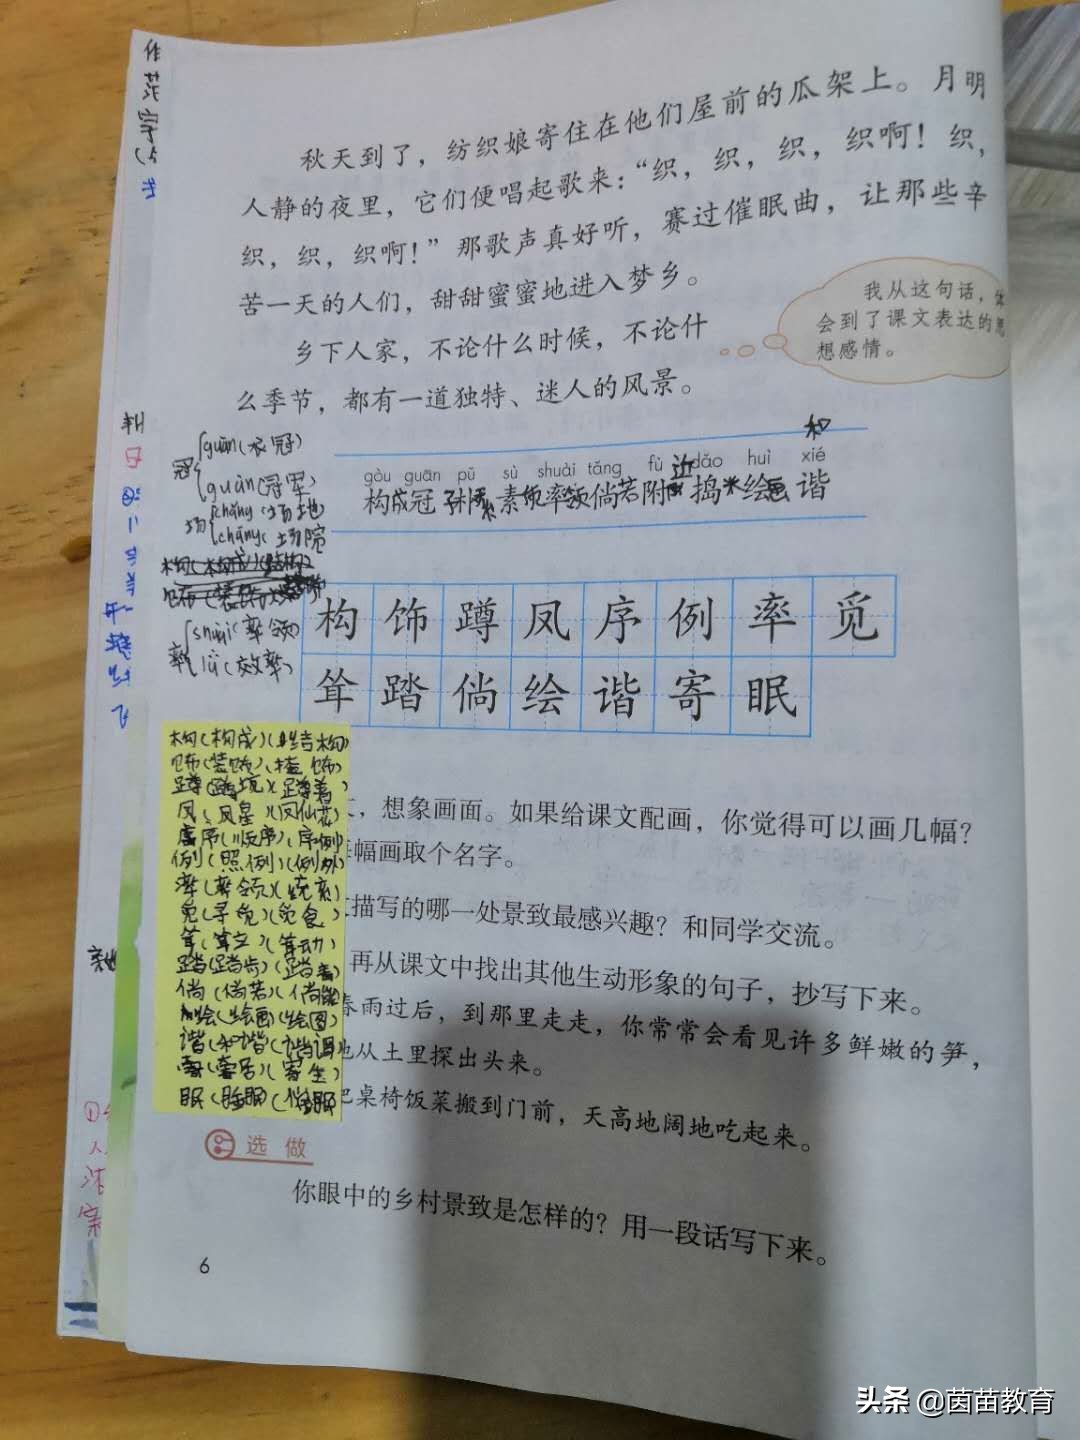 秋天到了，纺织娘寄住在他们屋前的瓜架上。月明
人静的夜里，它们便唱起歌来：“织，织，织，织啊！织，
织，织，织啊！”那歌声真好听，赛过催眠曲，让那些辛
苦一天的人们，甜甜蜜蜜地进入梦乡。
我从这句话，体
会到了课文表达的思
想感情。
乡下人家，不论什么时候，不论什
么季节，都有一道独特、迷人的风景。
冠
guān(衣冠)
guàn(冠军)
场
chǎng(场地)
cháng(场院
率
shuài(率领)
lǜ(效率)
和
gòu guān pǔ sù shuài tǎng fù dǎo huì xié
构成冠 朴素素 率领倘若附近捣米绘画谐
构饰蹲凤序例率觅
耸踏倘绘谐寄眠
构(构成)(结构)
饰(装饰)
蹲(蹲坑)(蹲着)
凤(凤凰)(凤仙花)
序(顺序)(序例)
例(照例)(例外)
率(率领)
觅(寻觅)(觅食)
耸(耸立)(耸动)
踏(踏步)(踏着)
倘(倘若)(倘能
绘(绘画)(绘图)
谐(和谐)(谐调
寄(寄居)(寄生)
眠(睡眠)
，想象画面。如果给课文配画，你觉得可以画几幅？
幅画取个名字。
描写的哪一处景致最感兴趣？和同学交流。
再从课文中找出其他生动形象的句子，抄写下来。
春雨过后，到那里走走，你常常会看见许多鲜嫩的笋，
地从土里探出头来。
把桌椅饭菜搬到门前，天高地阔地吃起来。
选做
你眼中的乡村景致是怎样的？用一段话写下来。
6
头条 @茵苗教育